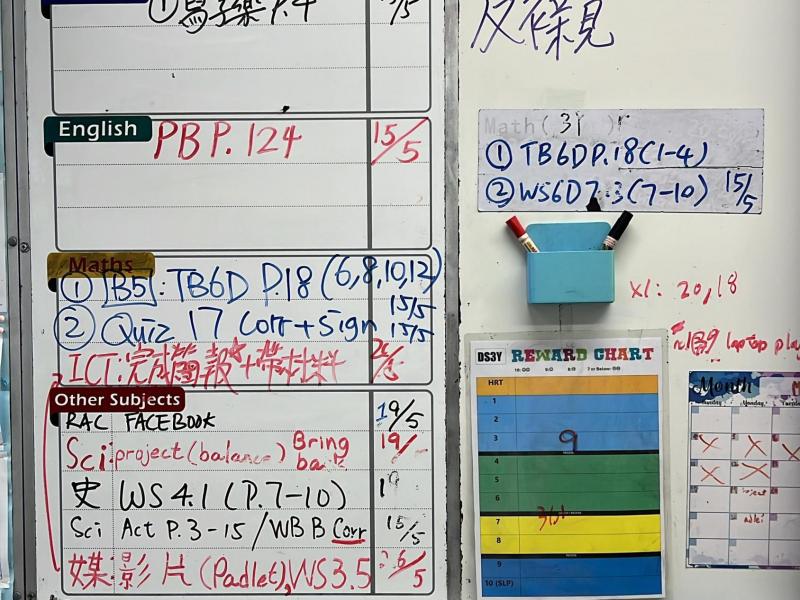 P.4
/5
English
PB P.124 15/5
Maths
① B5: TB6D P.18 (6,8,10,12) 15/5
② Quiz 17 Corr + Sign 15/5
ICT:完成圖報*+帶材料
Other Subjects
RAC FACEBOOK 19/5
Sci project (balance) Bring 19/
史 WS 4.1 (P.7-10)
Sci Act P.3-15 / WB B Corr 15/5
媒:影片 (Padlet), WS3.5 26/5
Math( 3Y )
① TB6D P.18 (1-4)
② WS6D7.3 (7-10) 15/5
X1: 20,18
laptop play
DS3Y REWARD CHART
HRT
1
2
3
9
4
5
6
7
8
9
10 (SLP)
Month
Sunday Monday Tuesday